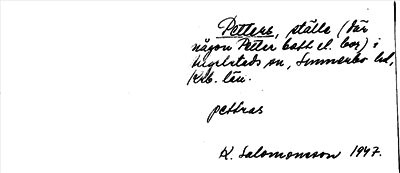 Petters, ställe (där
någon Petter bott el. bor) i
Angelstads sn, Sunnerbo hd,
Krb. län.
pettras
K. Salomonsson 1947.